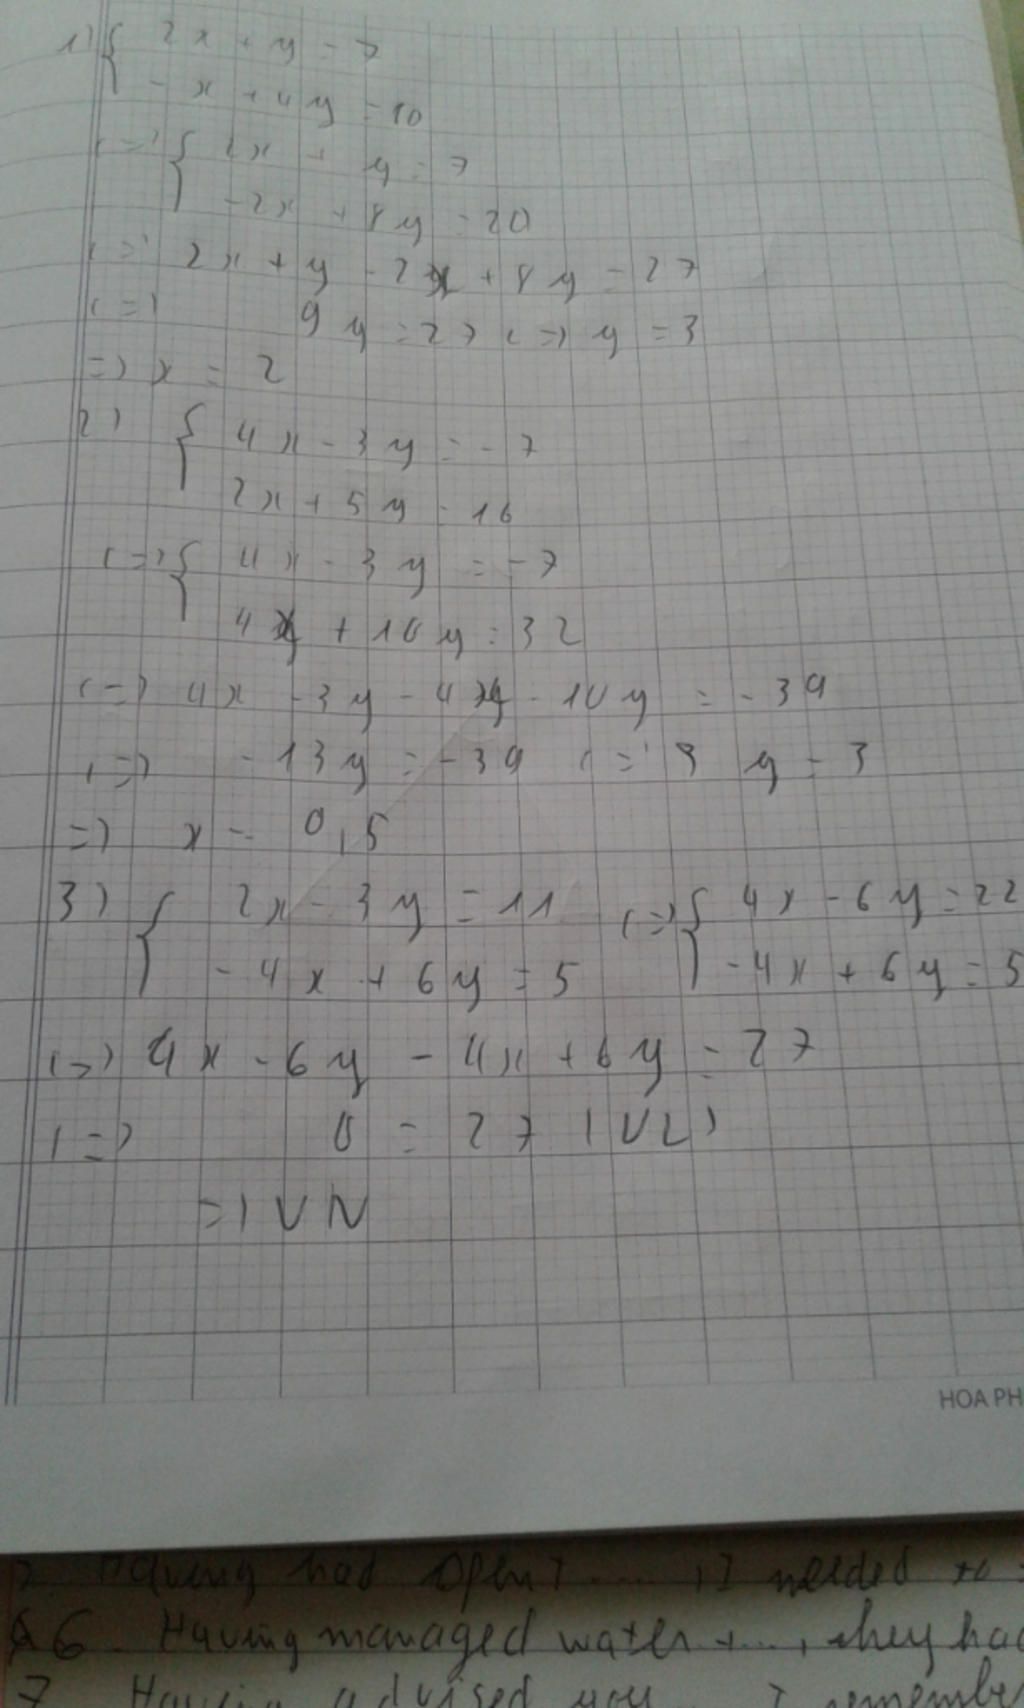 1) { 2x + y = 7
- x + 4y = 10
<=> { 2x + y = 7
- 2x + 8y = 20
<=> 2x + y - 2x + 8y = 27
<=> 9y = 27 <=> y = 3
=> x = 2
2) { 4x - 3y = - 7
2x + 5y = 16
<=> { 4x - 3y = - 7
4x + 10y = 32
<=> 4x - 3y - 4x - 10y = - 39
<=> - 13y = - 39 <=> y = 3
=> x = 0,5
3) { 2x - 3y = 11 <=> { 4x - 6y = 22
- 4x + 6y = 5 - 4x + 6y = 5
<=> 4x - 6y - 4x + 6y = 27
<=> 0 = 27 (VL)
=> VN
HOA PH
Having had ...., I needed to
6. Having managed water + ..., they had
7. Having advised you